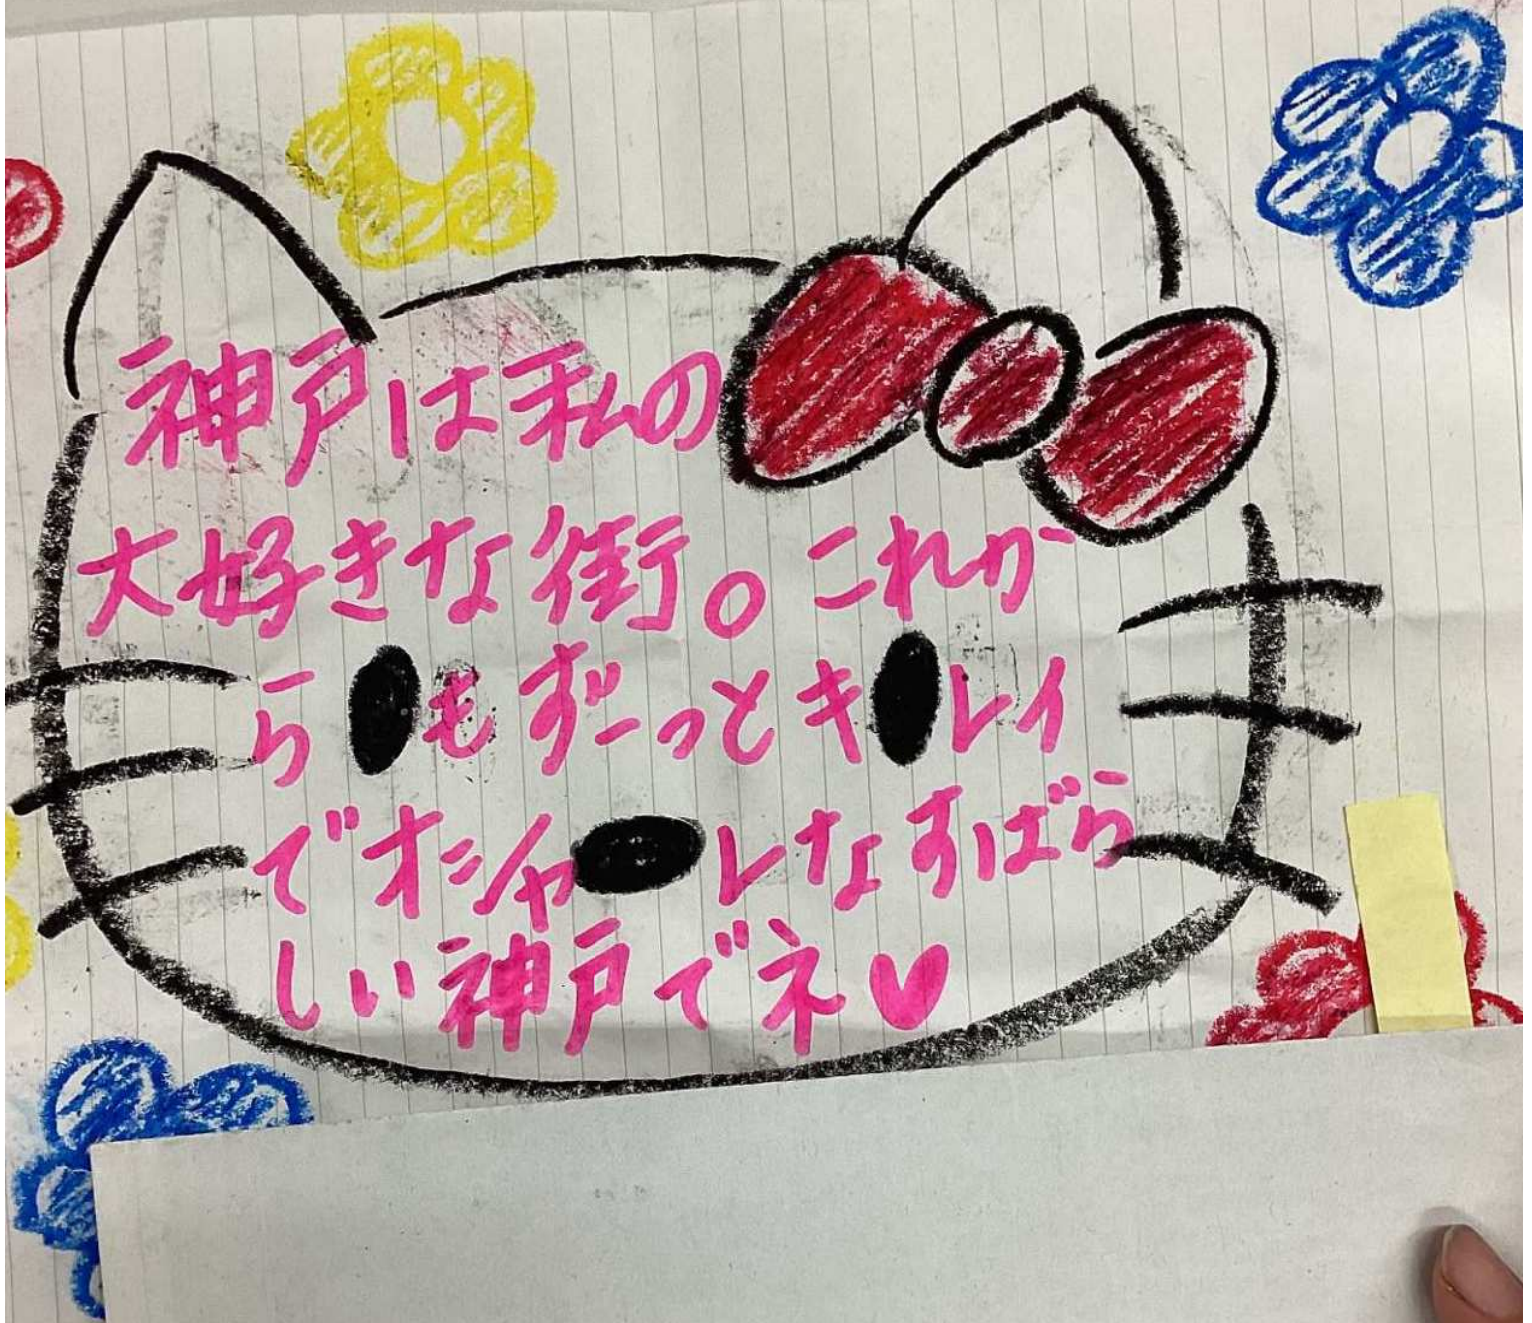 神戸は私の
大好きな街。これか
らもずーっとキレイ
でオシャレなすばら
しい神戸でネ♥